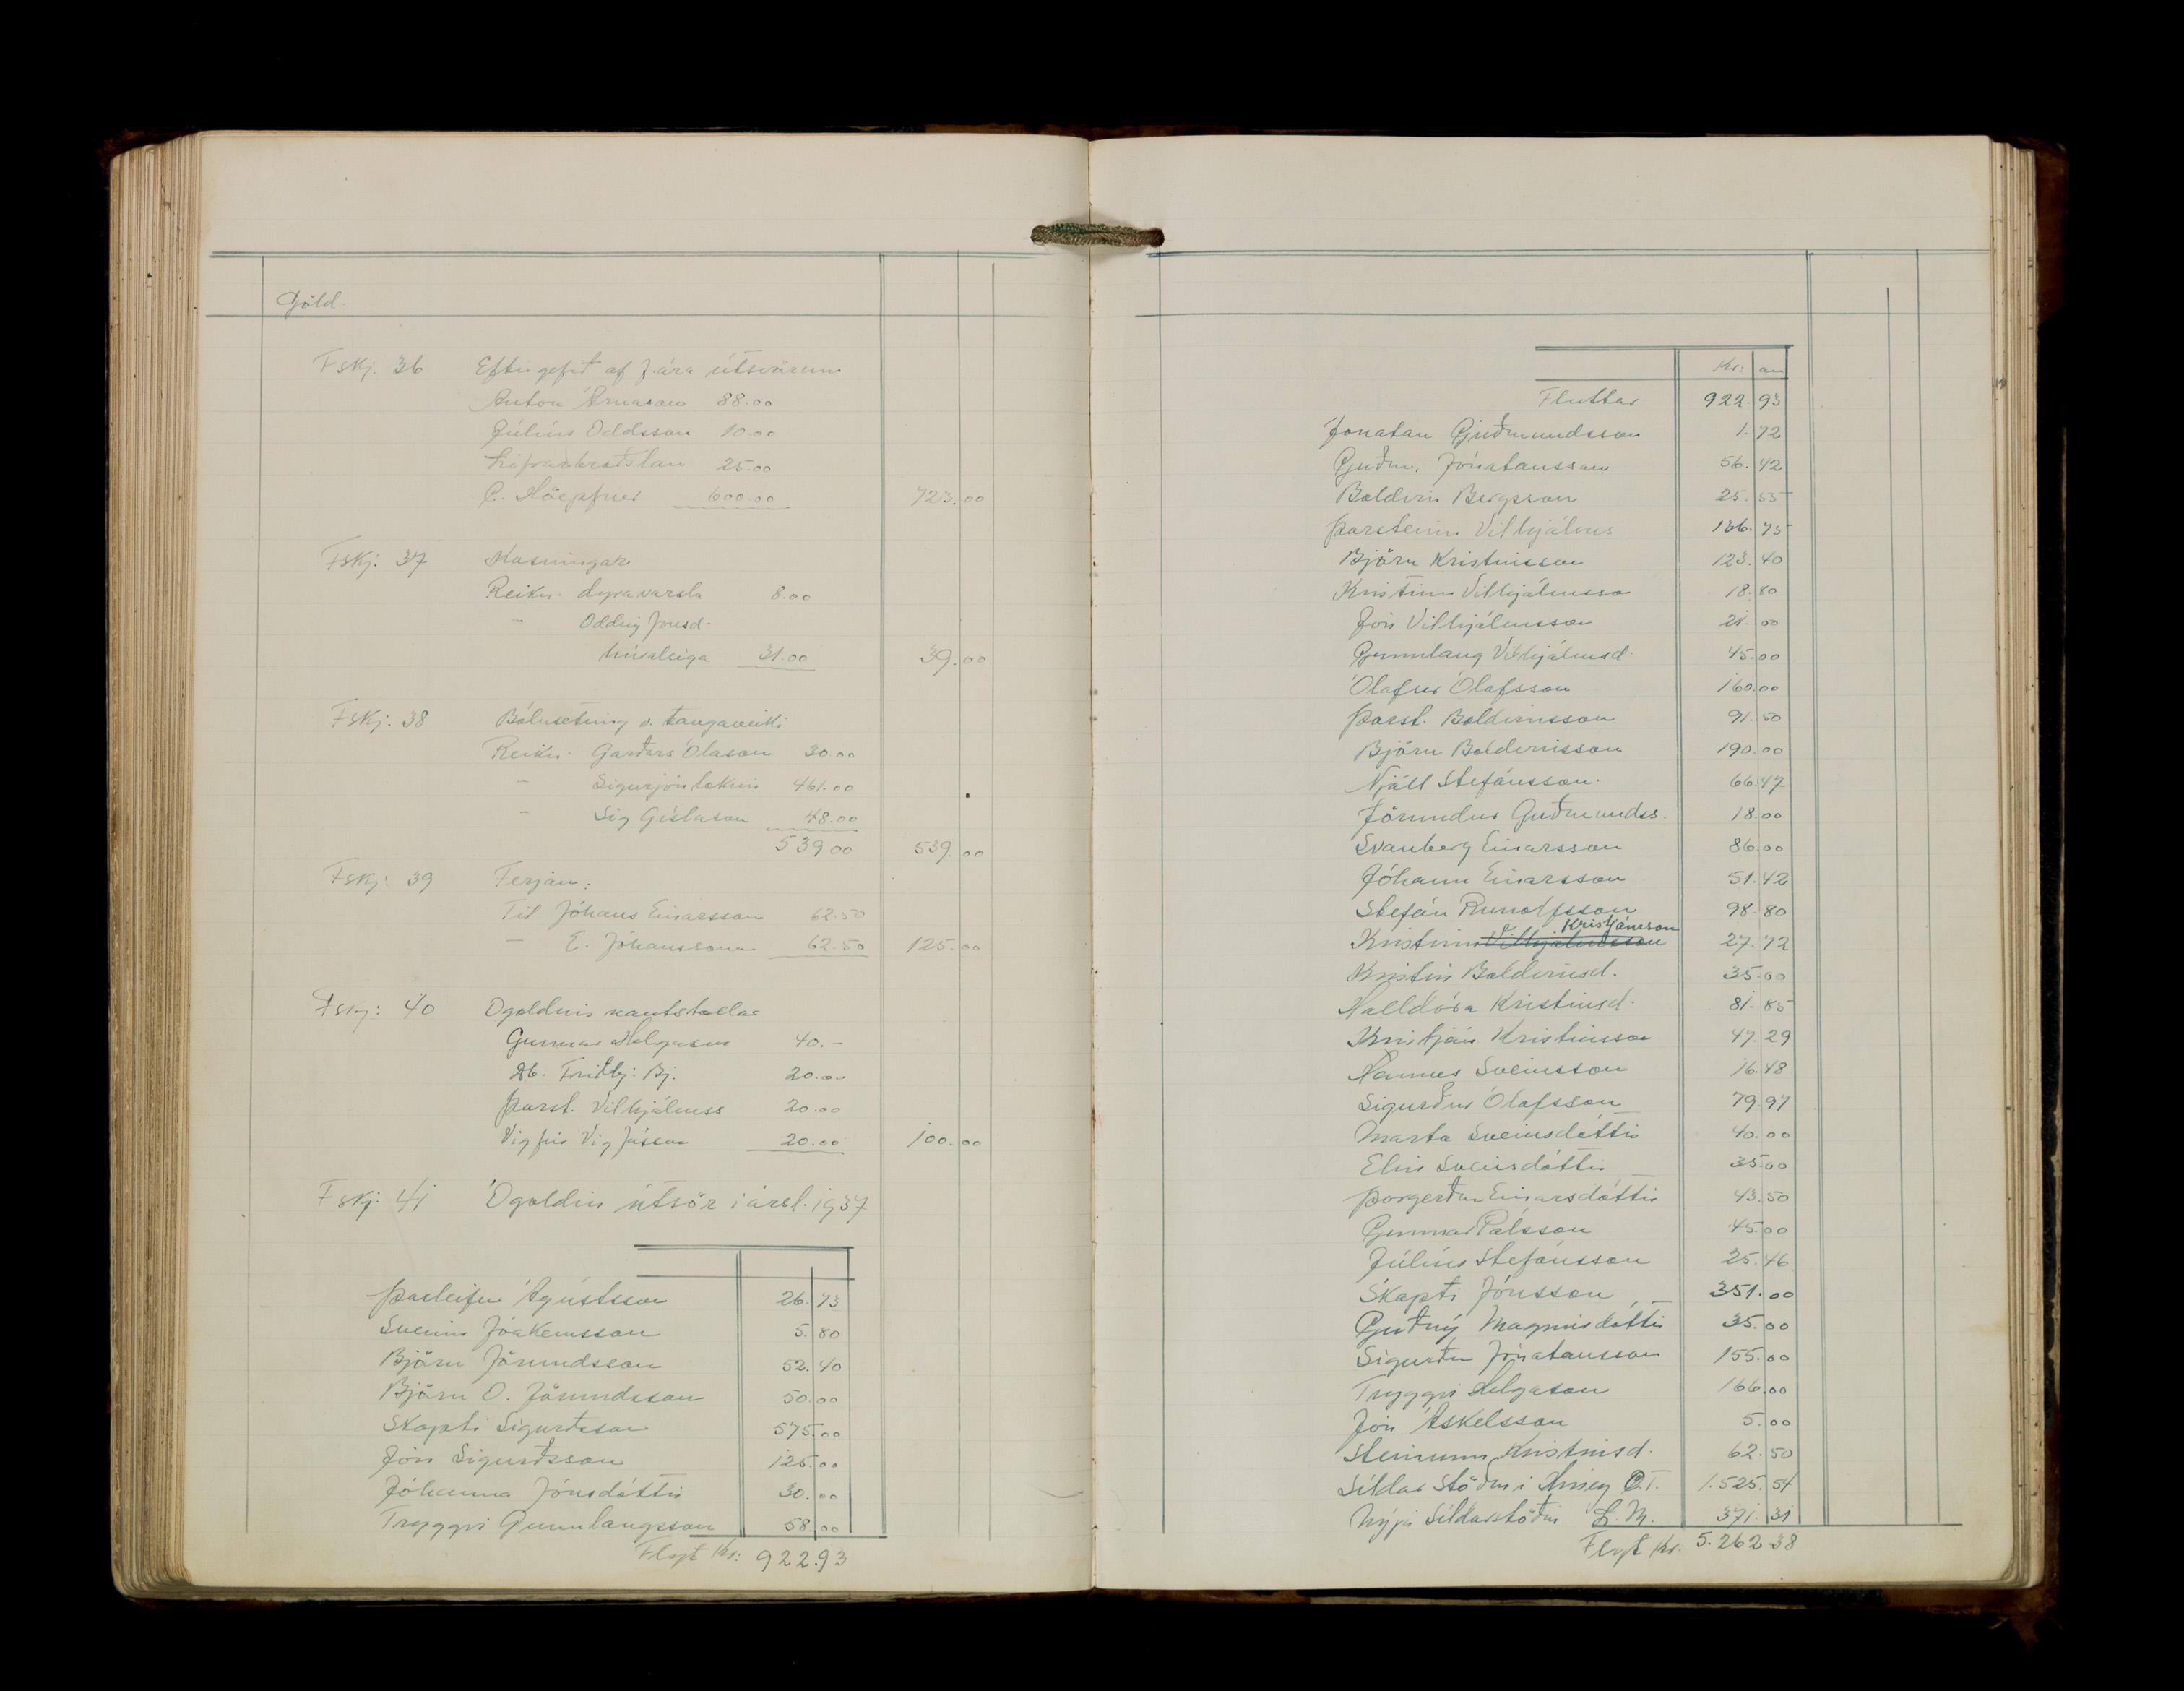 Gjöld.
Fskj. 36 Eftirgefið af f. ára útsvörum
Anton Árnason 88.00
Júlíus Oddsson 10.00
25.00
C. Höepfner 600.00 723.00
Fskj. 37 Kosningar
Reikn. dyravarsla 8.00
- Oddný Jónsd.
húsaleiga 31.00 39.00
Fskj. 38 Bólusetning v. taugaveiki
Reikn. Garðars Ólason 30.00
- Sigurjóns læknis 461.00
- Sig Gíslason 48.00
539 00 539.00
Fskj. 39 Ferjan:
Til Jóhans Einarsson 62.50
- E. Jóhannssonar 62.50 125.00
Fskj: 40 Ógoldnir nautstollar
Gunnar Helgason 40.-
Db. Friðbj. Bj. 20.00
Þorst. Vilhjálmss 20.00
Vigfús Vigfússon 20.00 100.00
Fskj: 41 Ógoldin útsvör í ársl. 1937
Þorleifur Ágústsson 26.73
Sveinn Jóakemsson 5.80
Björn Jörundsson 52.40
Björn O. Jörundsson 50.00
Skapti Sigurðsson 575.00
Jón Sigurðsson 125.00
Jóhanna Jónsdóttir 30.00
Tryggvi Gunnlaugsson 58.00
Flyt Kr: 922.93
Kr: au
Fluttar 922.93
Jónatan Guðmundsson 1.72
Guðm. Jónatansson 56.42
Baldvin Bergsson 25.55
Þorsteinn Vilhjálms 136.75
Björn Kristinsson 123.40
Kristinn Vilhjálmsso 18.80
Jón Vilhjálmsson 21.00
Gunnlaug Vilhjálmsd. 45.00
Ólafur Ólafsson 160.00
Þorst. Baldvinsson 91.50
Björn Baldvinsson 190.00
Njáll Stefánsson. 66.47
Jörundur Guðmundss. 18.00
Svanberg Einarsson 86.00
Jóhann Einarsson 51.42
Stefán Runolfsson 98.80
Kristinn Vilhjálmsson Kristjánsson 27.72
Kristín Baldvinsd. 35.00
Halldóra Kristinsd. 81.85
Kristján Kristinsson 47.29
Hannes Sveinsson 16.48
Sigurður Ólafsson 79.97
Marta Sveinsdóttir 40.00
Elín Sveinsdóttir 35.00
Þorgerður Einarsdóttir 43.50
Gunnar Pálsson 45.00
Júlíus Stefánsson 25.46
Skapti Jónsson 351.00
Guðný Magnúsdóttir 35.00
Sigurður Jónatansson 155.00
Tryggvi Helgason 166.00
Jón Áskelsson 5.00
Steinunn Kristinsd. 62.50
Síldar Stöðin í Hrísey O.T. 1.525.54
Nýja Síldarstöðin L.M. 371.31
Flyt Kr. 5.262.38